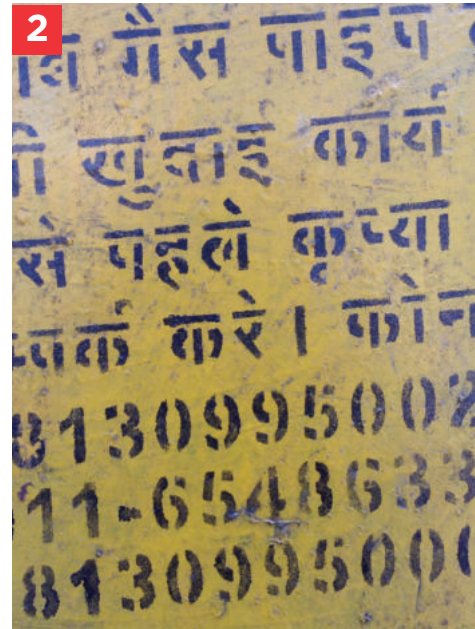 2
गैस पाइप
खुदाई कार्य
से पहले कृप्या
म्पर्क करे। फोन
8130995002
011-6548633
8130995000